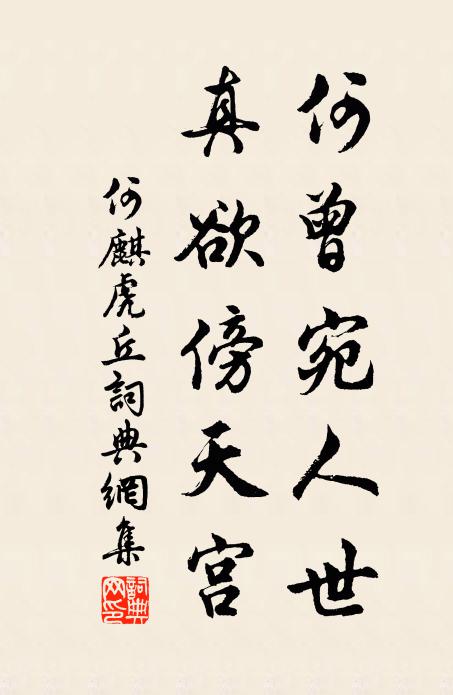 何曾宛人世
真欲傍天宫
何麒虎丘詞典網集
詞典网印